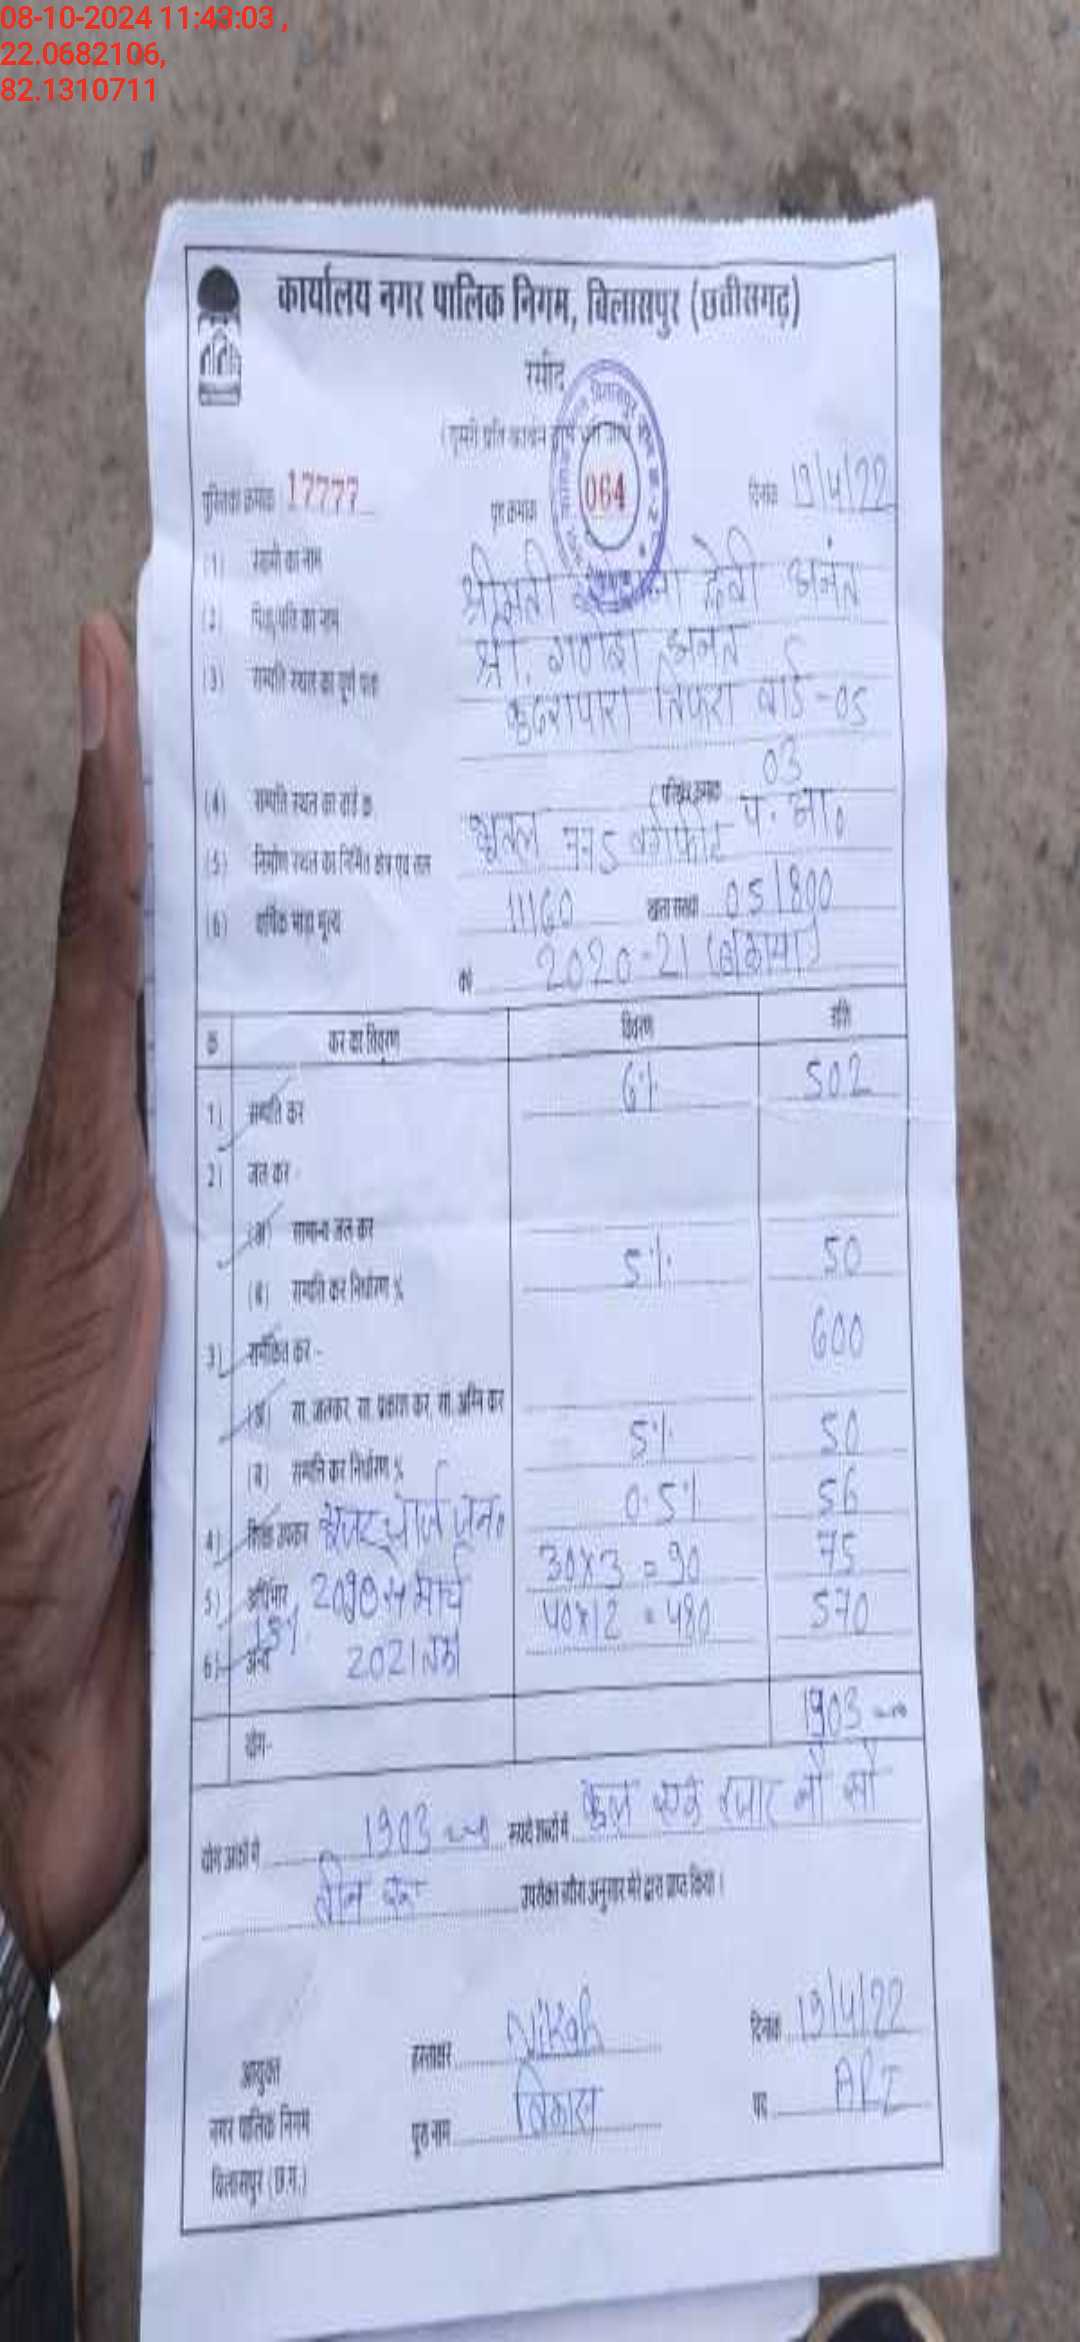 08-10-2024 11:43:03 ,
22.0682106,
82.1310711
कार्यालय नगर पालिक निगम, बिलासपुर (छत्तीसगढ़)
रसीद
पुस्तिका क्रमांक 17777 पृष्ठ क्रमांक 064 दिनांक 19/4/22
(1) स्वामी का नाम श्रीमती देवी अनंत
(2) पिता/पति का नाम श्री. गणेश अनंत
(3) सम्पत्ति स्थल का पूर्ण पता कुदरापारा तिफरा वार्ड-05
(4) सम्पत्ति स्थल का वार्ड क्र परिक्षेत्र क्रमांक 03
(5) निर्माण स्थल का निर्मित क्षेत्र एवं तल भूतल वर्गफीट प. आ.
(6) वार्षिक भाड़ा मूल्य 11160 खाता संख्या 051800
वर्ष 2020-21 (बकाया)
क्र कर का विवरण विवरण राशि
1) सम्पत्ति कर 6% 502
2) जल कर -
(अ) सामान्य जल कर
(ब) सम्पत्ति कर निर्धारण % 5% 50
3) समेकित कर - 600
(अ) सा. जलकर, सा. प्रकाश कर, सा. अग्नि कर
(ब) सम्पत्ति कर निर्धारण % 5% 50
4) शिक्षा उपकर 0.5% 56
यूजर चार्ज जन.
5) अधिभार 15% 30x3 = 90 75
2020 से मार्च
6) अन्य 2021 तक 40x12 = 480 570
योग- 1903
योग अंकों में 1903 रूपये शब्दों में कुल एक हजार नौ सौ
तीन रू उपरोक्त ब्यौरा अनुसार मेरे द्वारा प्राप्त किया।
हस्ताक्षर Vikash दिनांक 19/4/22
आयुक्त
नगर पालिक निगम पूरा नाम विकास पद ARI
बिलासपुर (छ.ग.)